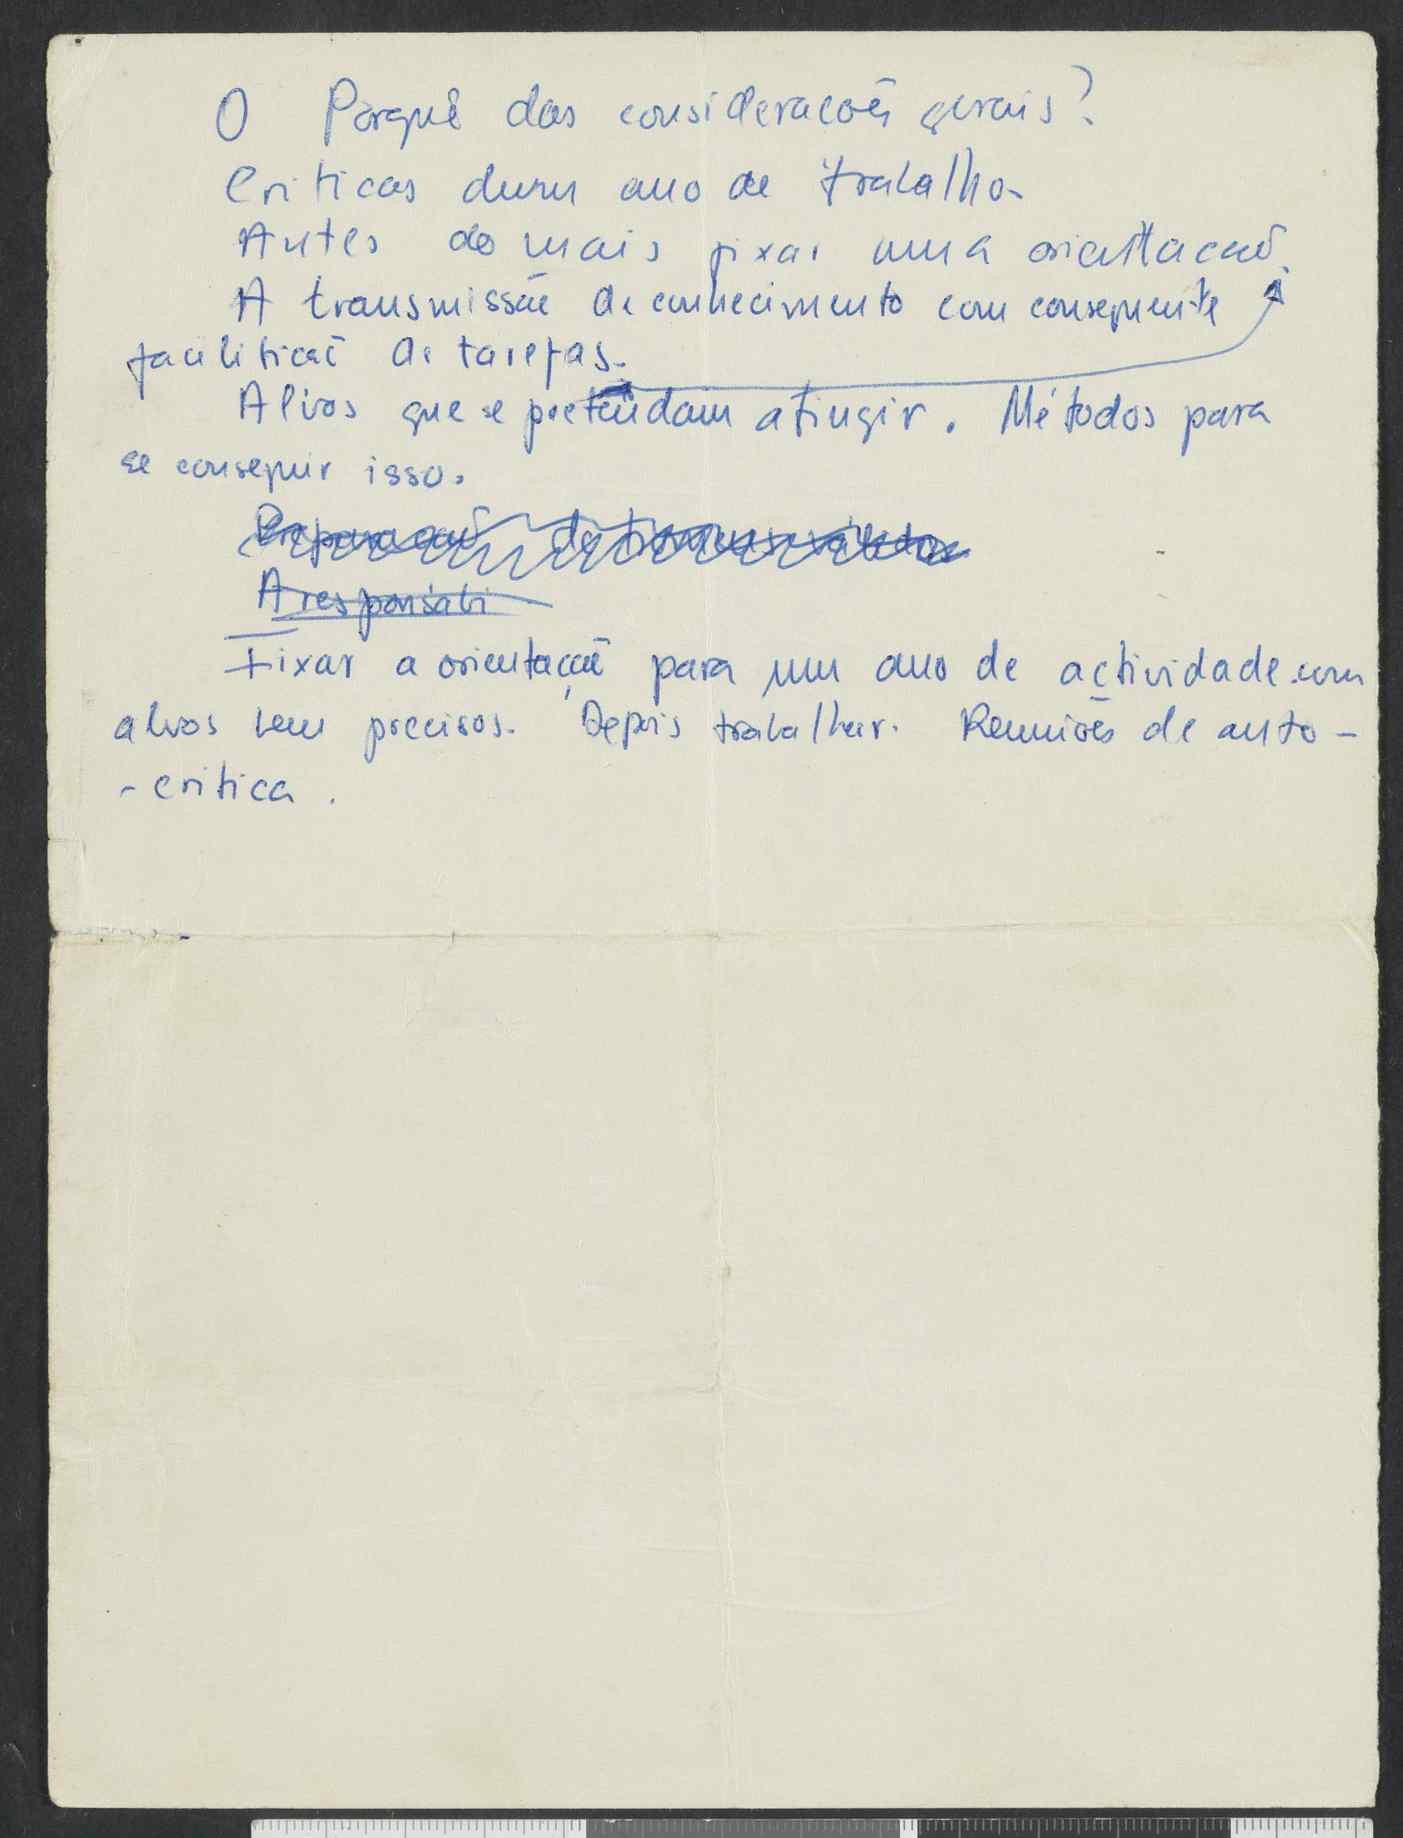 O Porquê das consideracões gerais?
Criticas dum ano de trabalho.
Antes do mais fixar uma orientacaõ.
A transmissão de conhecimento com consequente
faciliticaõ de tarefas.
Alvos que se pretendam atingir. Métodos para
se conseguir isso.
Preparacaõ de
A responsabi
Fixar a orientaçaõ para um ano de actividade com
alvos bem precisos. Depois trabalhar. Reuniões de auto-
-critica.